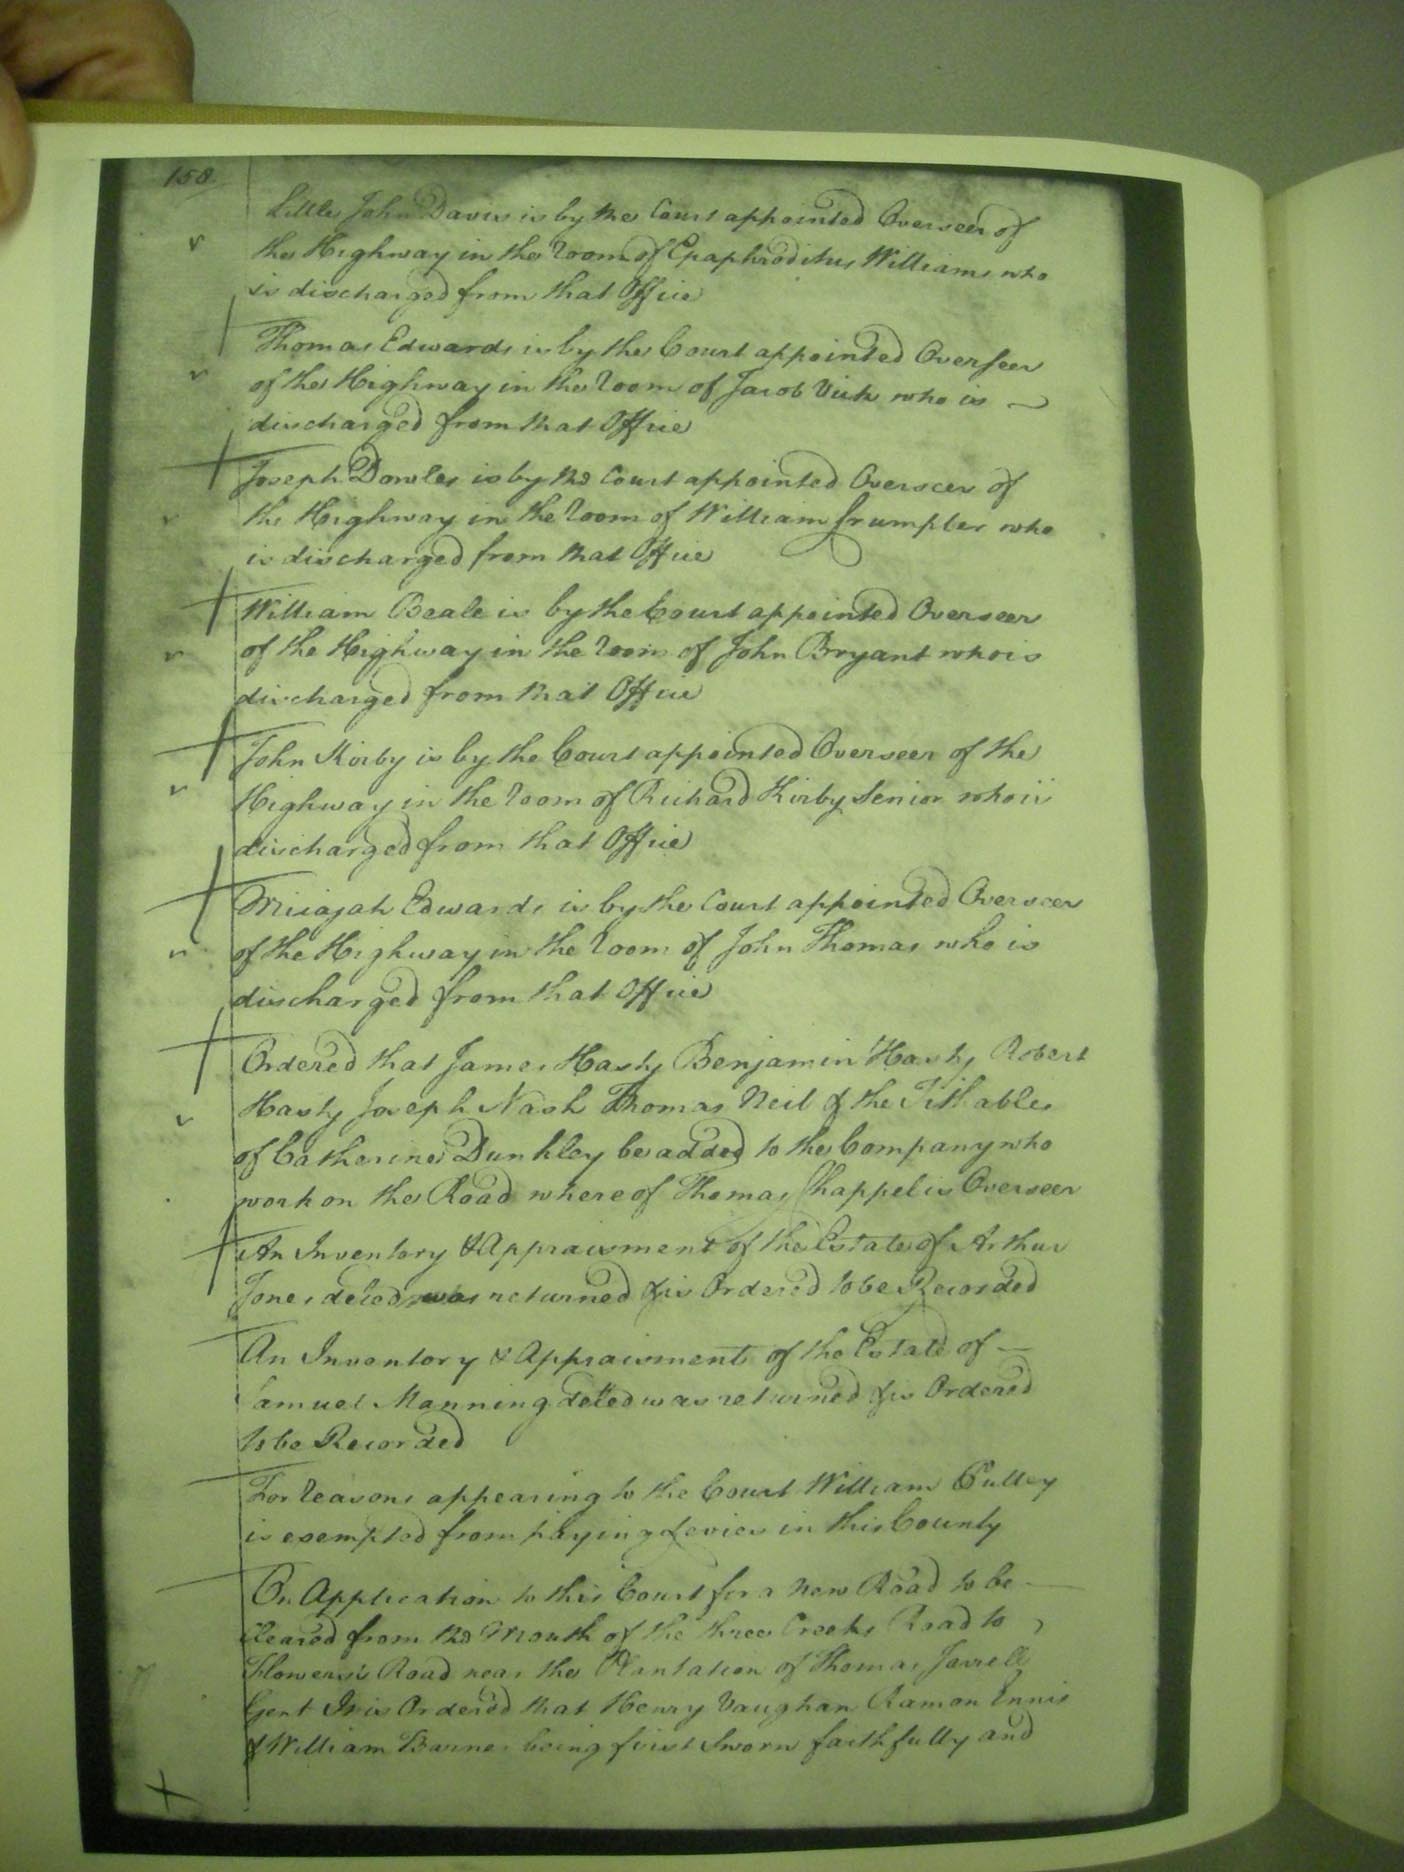 158
Little John Davis is by the Court appointed Overseer of
the Highway in the Room of Epaphroditus Williams who
is discharged from that Office
Thomas Edwards is by the Court appointed Overseer
of the Highway in the Room of Jacob Vick who is
discharged from that Office
Joseph Dowles is by the Court appointed Overseer of
the Highway in the Room of William Crumpler who
is discharged from that Office
William Beale is by the Court appointed Overseer
of the Highway in the Room of John Bryant who is
discharged from that Office
John Kirby is by the Court appointed Overseer of the
Highway in the Room of Richard Kirby Senior who is
discharged from that Office
Micajah Edwards is by the Court appointed Overseer
of the Highway in the Room of John Thomas who is
discharged from that Office
Ordered that James Hasty Benjamin Hasty Robert
Hasty Joseph Nash Thomas Neil & the Tithables
of Catherine Dunkley be added to the Company who
work on the Road whereof Thomas Chappel is Overseer
An Inventory & Appraisment of the Estate of Arthur
Jones deced was returned & is Ordered to be Recorded
An Inventory & Appraisment of the Estate of
Samuel Manning deced was returned & is Ordered
to be Recorded
For Reasons appearing to the Court William Pulley
is exempted from paying Levies in this County
On Application to this Court for a new Road to be
cleared from the Mouth of the three Creeks Road to
Flowers's Road near the Plantation of Thomas Jarrell
Gent It is Ordered that Henry Vaughan Ramon Ennis
& William Barnes being first Sworn faithfully and